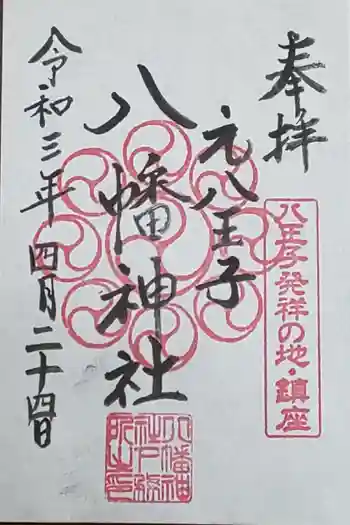 奉拝
八王子発祥の地・鎮座
元八王子
八幡神社
令和三年 四月二十四日
八幡神
社戸張
所之印